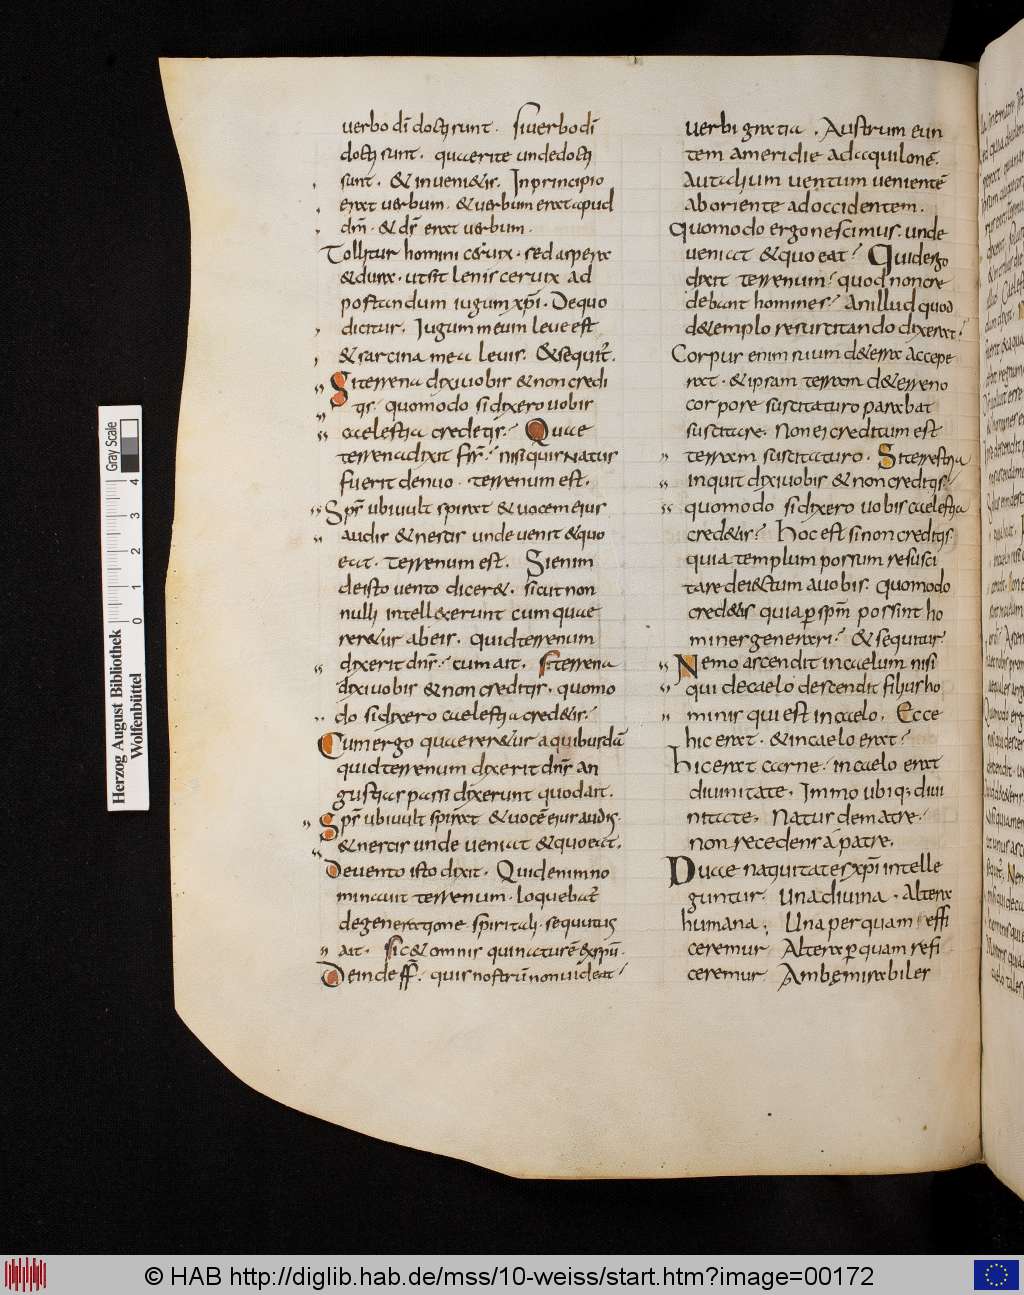 uerbo dī docti sunt. Si uerbo dī
docti sunt. quaerite unde docti
sunt. & inuenietis. In principio
erat uerbum. & uerbum erat apud
dm̄. & ds̄ erat uerbum.
Tollitur homini ceruix. sed aspera
& dura. ut sit lenis ceruix ad
portandum iugum xp̄i. De quo
dicitur. Iugum meum leue est
& sarcina mea leuis. & sequit̄.
Si terrena dixi uobis & non credi
tis. quomodo si dixero uobis
caelestia credetis. Quae
terrena dixit frs̄. nisi quis natus
fuerit denuo. terrenum est.
Sps̄ ubi uult spirat & uocem eius
audis & nescis unde uenit & quo
eat. terrenum est. Si enim
de isto uento dicer&. sicut non
nulli intell&erunt cum quae
rer&ur ab eis. quid terrenum
dixerit dns̄. cum ait. Si terrena
dixi uobis & non creditis. quomo
do si dixero caelestia cred&is.
Cum ergo quaerer&ur a quibusdā
quid terrenum dixerit dns̄ an
gustias passi dixerunt quod ait.
Sps̄ ubi uult spirat & uocē eius audis.
& nescis unde ueniat & quo eat.
De uento isto dixit. Quid enim no
minauit terrenum. loquebat̄
de generatione spiritali. sequutus
ait. Sic & omnis qui natus ē ex spū.
Deinde ff̄. quis nostrū non uideat
uerbi gratia. Austrum eun
tem a meridie ad aquilonē.
aut alium uentum uenientē
ab oriente ad occidentem.
quomodo ergo nescimus. unde
ueniat & quo eat. Quid ergo
dixit terrenum. quod non cre
debant homines. An illud quod
de templo resuscitando dixerat.
Corpus enim suum de terra accepe
rat. & ipsam terram de terreno
corpore suscitaturo parabat
suscitare. Non ei creditum est
terram suscitaturo. Si terrestria
inquit dixi uobis & non creditis
quomodo si dixero uobis caelestia
cred&is. Hoc est si non creditis
quia templum possum resusci
tare deiectum a uobis. Quomodo
cred&is quia per spm̄ possint ho
mines generari. & sequitur
Nemo ascendit in caelum nisi
qui de caelo descendit filius ho
minis qui est in caelo. Ecce
hic erat. & in caelo erat.
Hic erat carne. in caelo erat
diuinitate. Immo ubiq; diui
nitate. Natus de matre.
non recedens a patre.
Duae natiuitates xp̄i intelle
guntur. Una diuina. Altera
humana. Una per quam effi
ceremur. Altera per quam refi
ceremur. Ambę mirabiles
Herzog August Bibliothek
Wolfenbüttel
Gray Scale
0 1 2 3 4
© HAB http://diglib.hab.de/mss/10-weiss/start.htm?image=00172